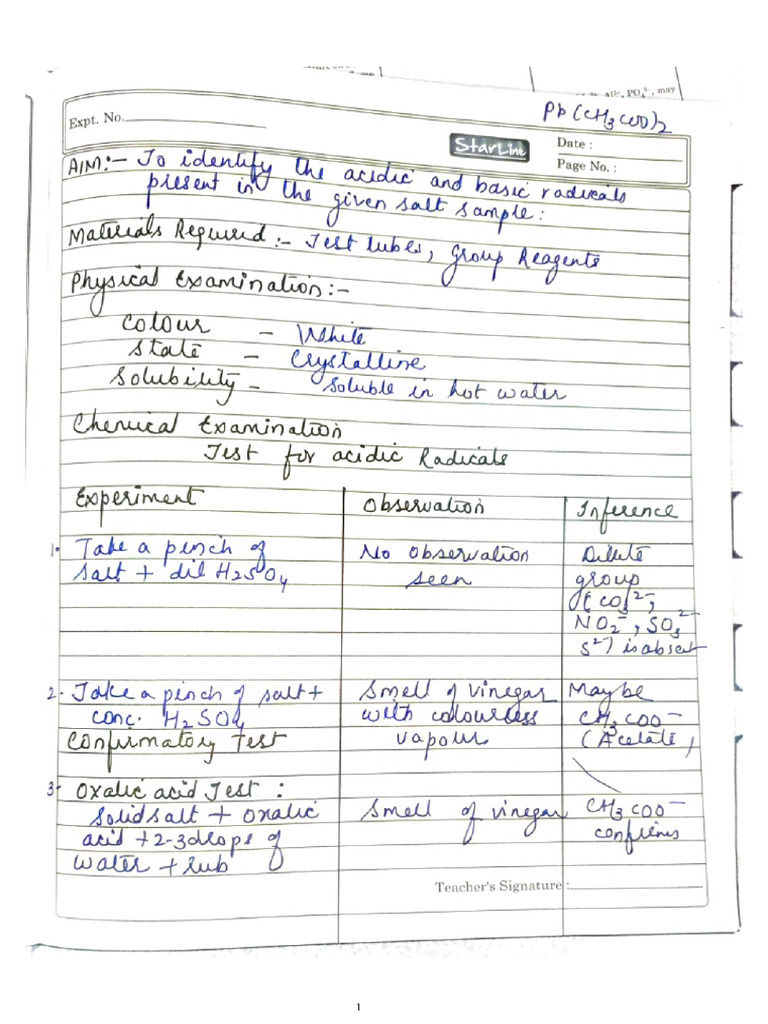 alk, PO₄³⁻, may
Pb(CH3COO)2
Expt. No.
StarLine
Date :
Page No. :
AIM:- To identify the acidic and basic radicals
present in the given salt sample:
Materials Required :- Test tubes, Group Reagents
Physical Examination:-
Colour - White
State - Crystalline
Solubility - Soluble in hot water
Chemical Examination
Test for acidic Radicals
Experiment Observation Inference
1. Take a pinch of No observation Dilute
salt + dil H2SO4 seen group
(CO3²⁻,
NO2⁻, SO3²⁻
S²⁻) is absent
2. Take a pinch of salt + Smell of vinegar Maybe
conc. H2SO4 with colourless CH3COO⁻
Confirmatory Test vapour (Acetate)
3. Oxalic acid Test :
Solid salt + Oxalic Smell of vinegar CH3COO⁻
acid + 2-3 drops of confirms
water + rub
Teacher's Signature :
1